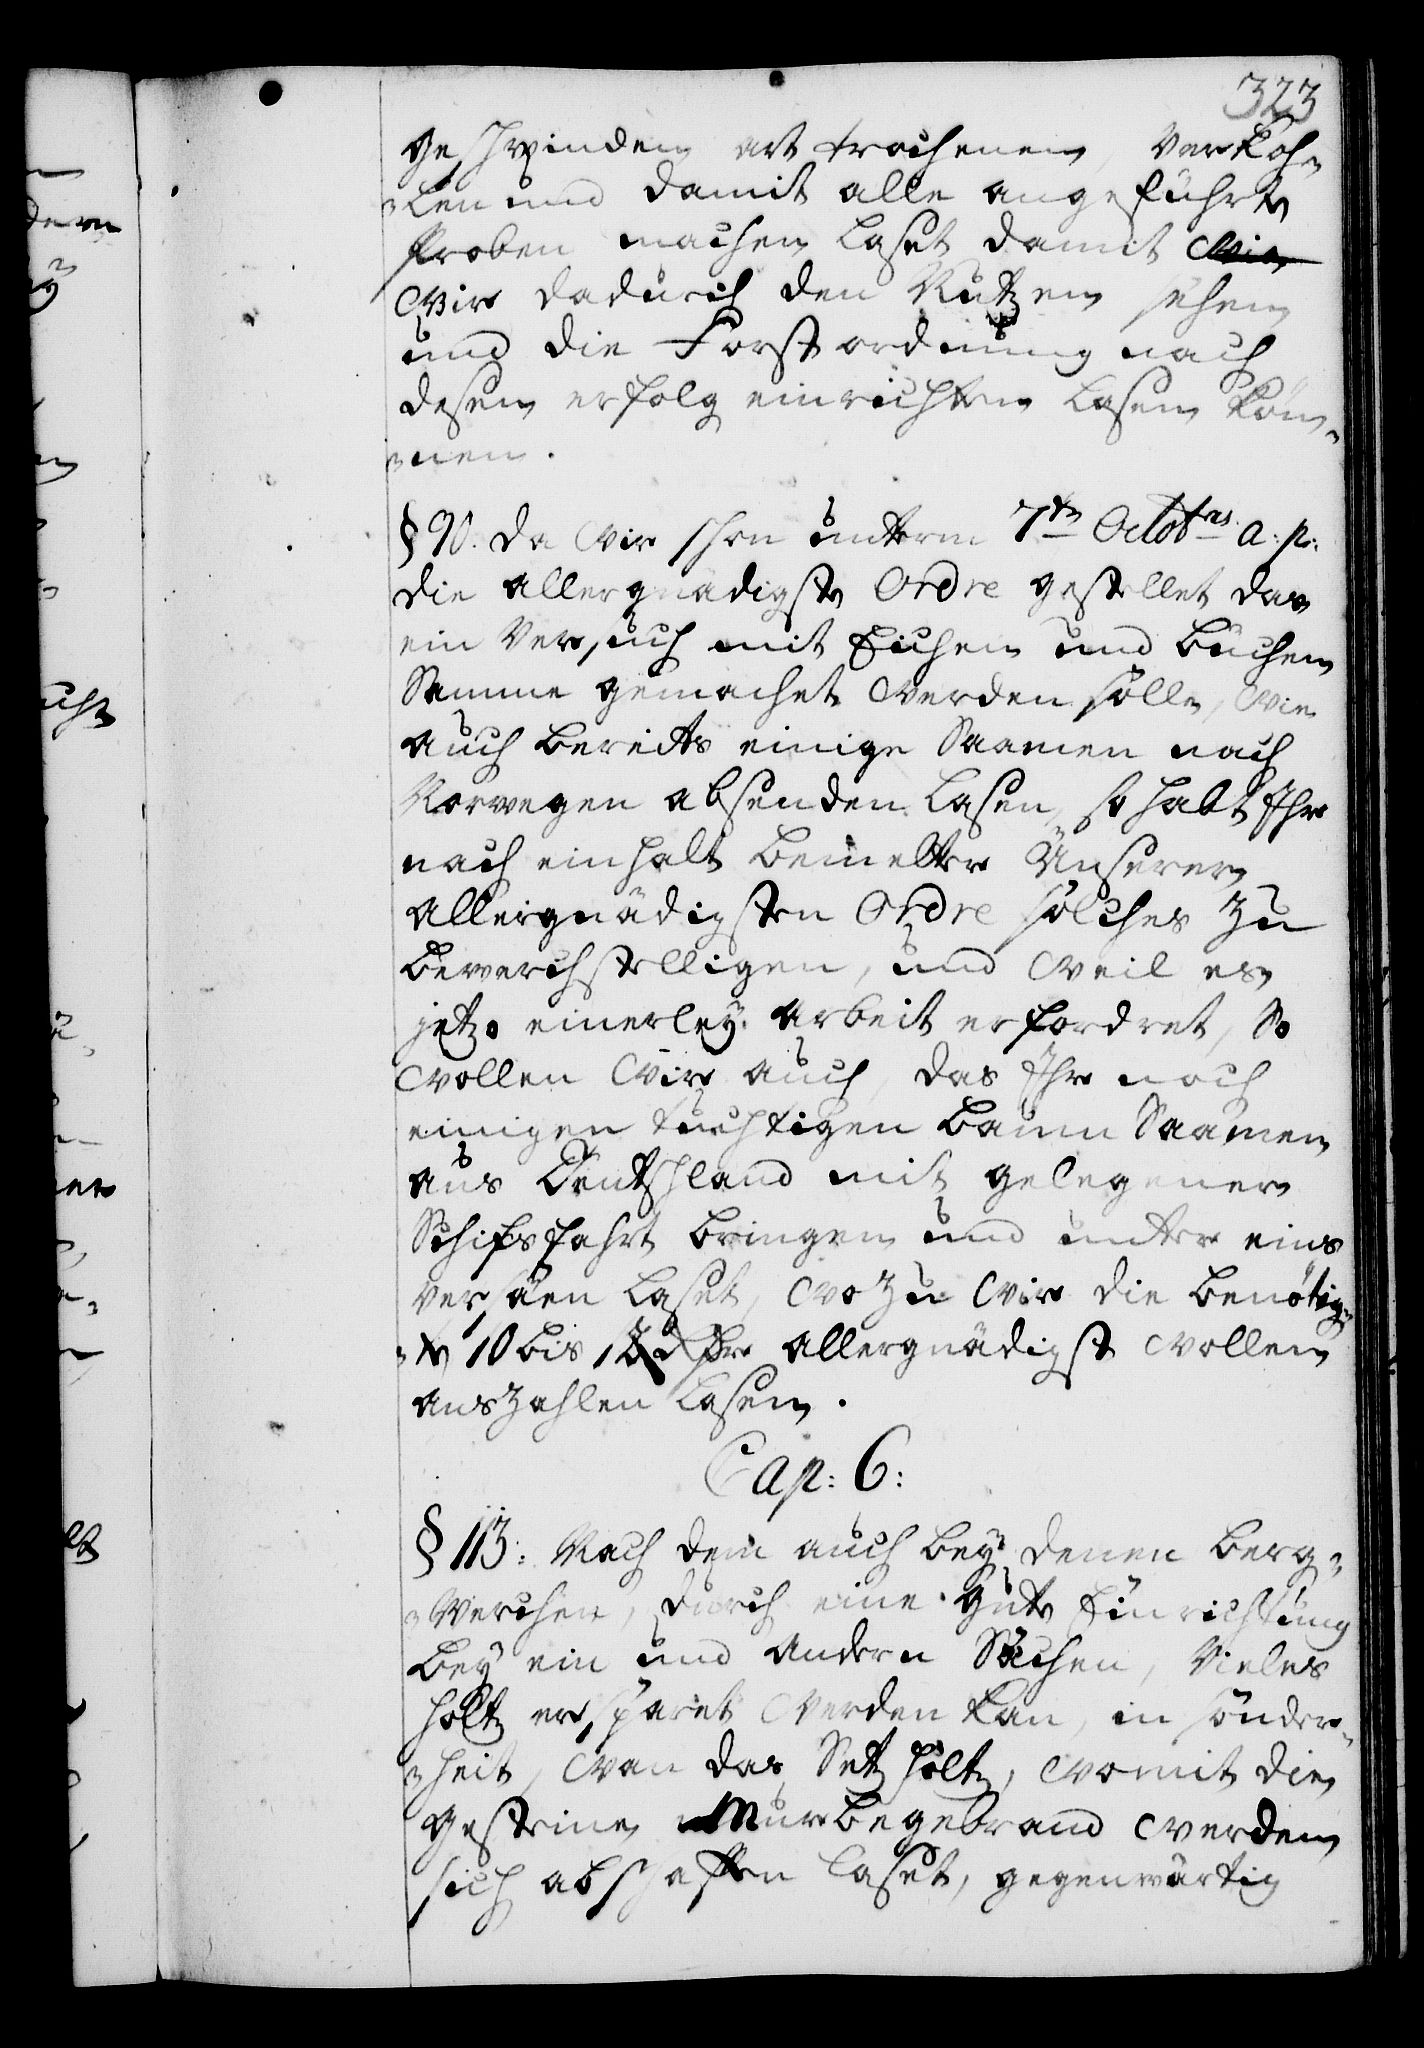 323
geschwinden art trochenen, Verkoh-
-len und damit alle angeführte
Proben machen laset damit wir
wir dadurch den Nutzen sehen
und die Forstordnung nach
desen erfolg einrichten lasen kön-
-nen.
§ 90. Da wir schon unterm 7ten Octobris a: p:
die allergnädigste Ordre gestellet das
ein Versuch mit Eichen und Büchen
Samme gemachet werden solle, wie
auch bereits einige Saamen nach
Norwegen absenden lasen, so habt Ihr
nach einhalt bemelter Unserer
allergnädigsten Ordre solches zu
bewerchstelligen, und weil es
jetzo einerley arbeit erfordret, So
wollen wir auch, das Ihr noch
einigen tuchtigen baum Saamen
aus Deutschland mit gelegener
Schifsfahrt bringen und unter eins
versäen laset, wozu wir die benötig-
-te 10 bis 12 allergnädigst wollen
auszahlen lasen.
Cap: 6:
§ 113: Nach dem auch bey denen berg-
-werchen, durch eine gute Einrichtung
bey ein und andern Sachen, vieles
holtz ersparet werden kan, in sonder-
-heit, wan das Setz holtz, womit die
gesteine Murbe gebrand werden
sich abschaffen laset, gegenwärtig